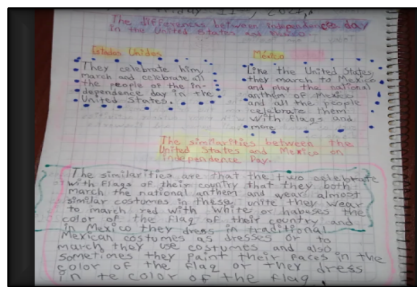 The differences between Independence day
in the United States and Mexico
Estados Unidos
They celebrate him,
march and celebrate all
the people at the in-
dependence day in the
United States.
México
Like the United States
they march to Mexico
and play the national
anthem of Mexico
and all the people
celebrate them
with flags and
more.
The similarities between the
United States and Mexico on
Independence Day.
The similarities are that the two celebrate
with flags of their country that they both
march the national anthem and wear almost
similar costumes in these, unite they wear
to march red with white or
color of the flag of their country and
in Mexico they dress in traditional
Mexican costumes as dresses or to
march they use costumes and also
sometimes they paint their faces in the
color of the flag or they dress
in te color of the flag.